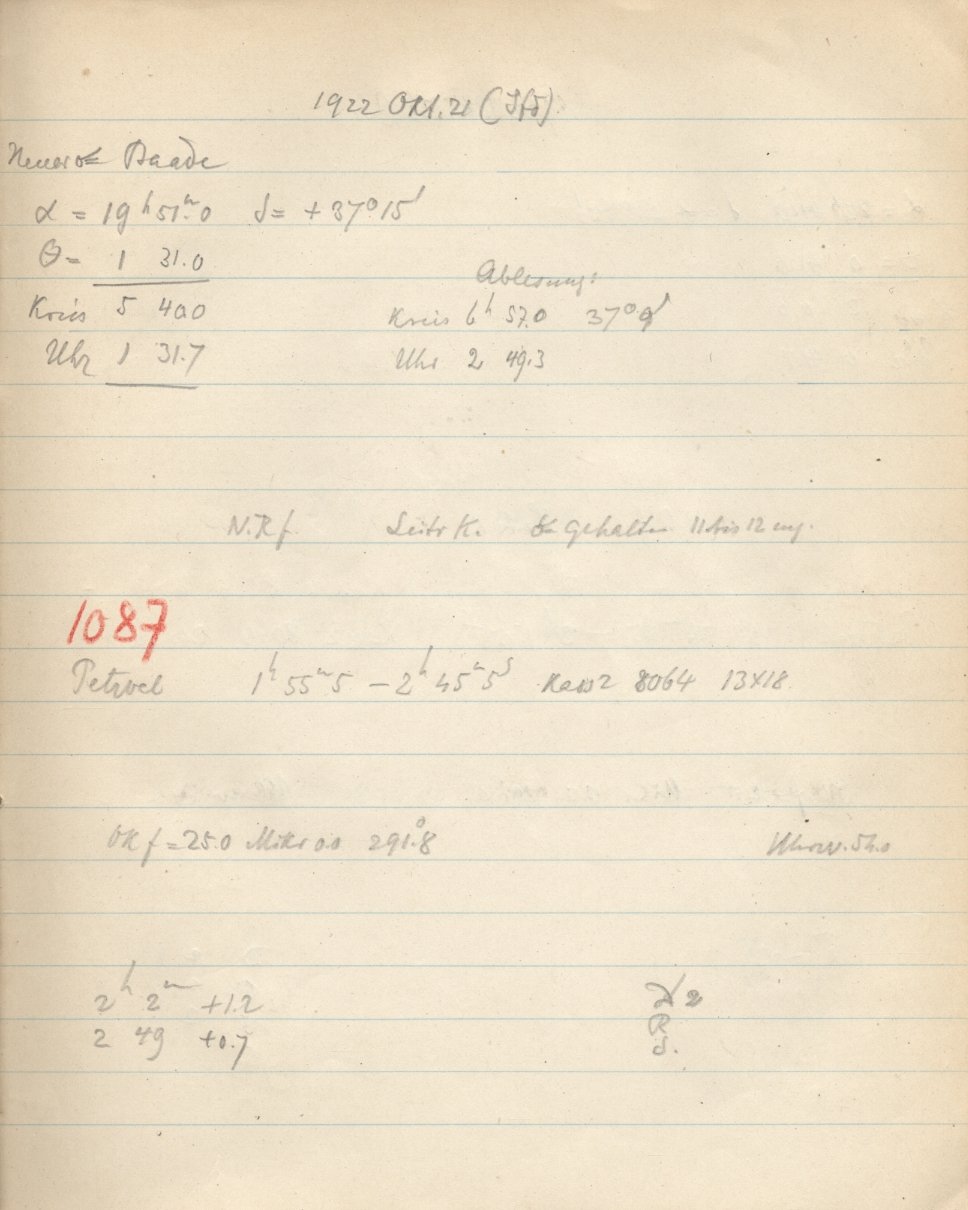 1922 Okt. 21 (Sfd)
Neuer Baade
α = 19ʰ 51ᵐ.0 δ = +37° 15'
θ = 1 31.0
Kreis 5 40.0
Uhr 1 31.7
Ablesung:
Kreis 6ʰ 57.0 37° 9'
Uhr 2 49.3
N.Rf. Leitr K. gehalten 11 bis 12 mg.
1087
Petzvel 1ʰ 55ᵐ 5 – 2ʰ 45ᵐ 5ˢ Kass 2 8064 13x18
OK f = 25.0 Mikr 0.0 291.°8 Uhrzw. 54.0
2ʰ 2ᵐ +1.2
2 49 +0.7
2
R
S.